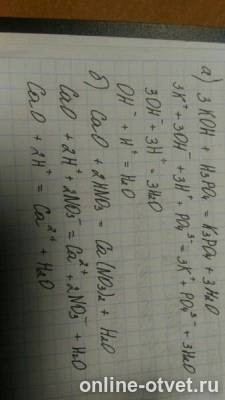 а) 3KOH + H₃PO₄ = K₃PO₄ + 3H₂O
3K⁺ + 3OH⁻ + 3H⁺ + PO₄³⁻ = 3K⁺ + PO₄³⁻ + 3H₂O
3OH⁻ + 3H⁺ = 3H₂O
OH⁻ + H⁺ = H₂O
б) CaO + 2HNO₃ = Ca(NO₃)₂ + H₂O
CaO + 2H⁺ + 2NO₃⁻ = Ca²⁺ + 2NO₃⁻ + H₂O
CaO + 2H⁺ = Ca²⁺ + H₂O
online-otvet.ru